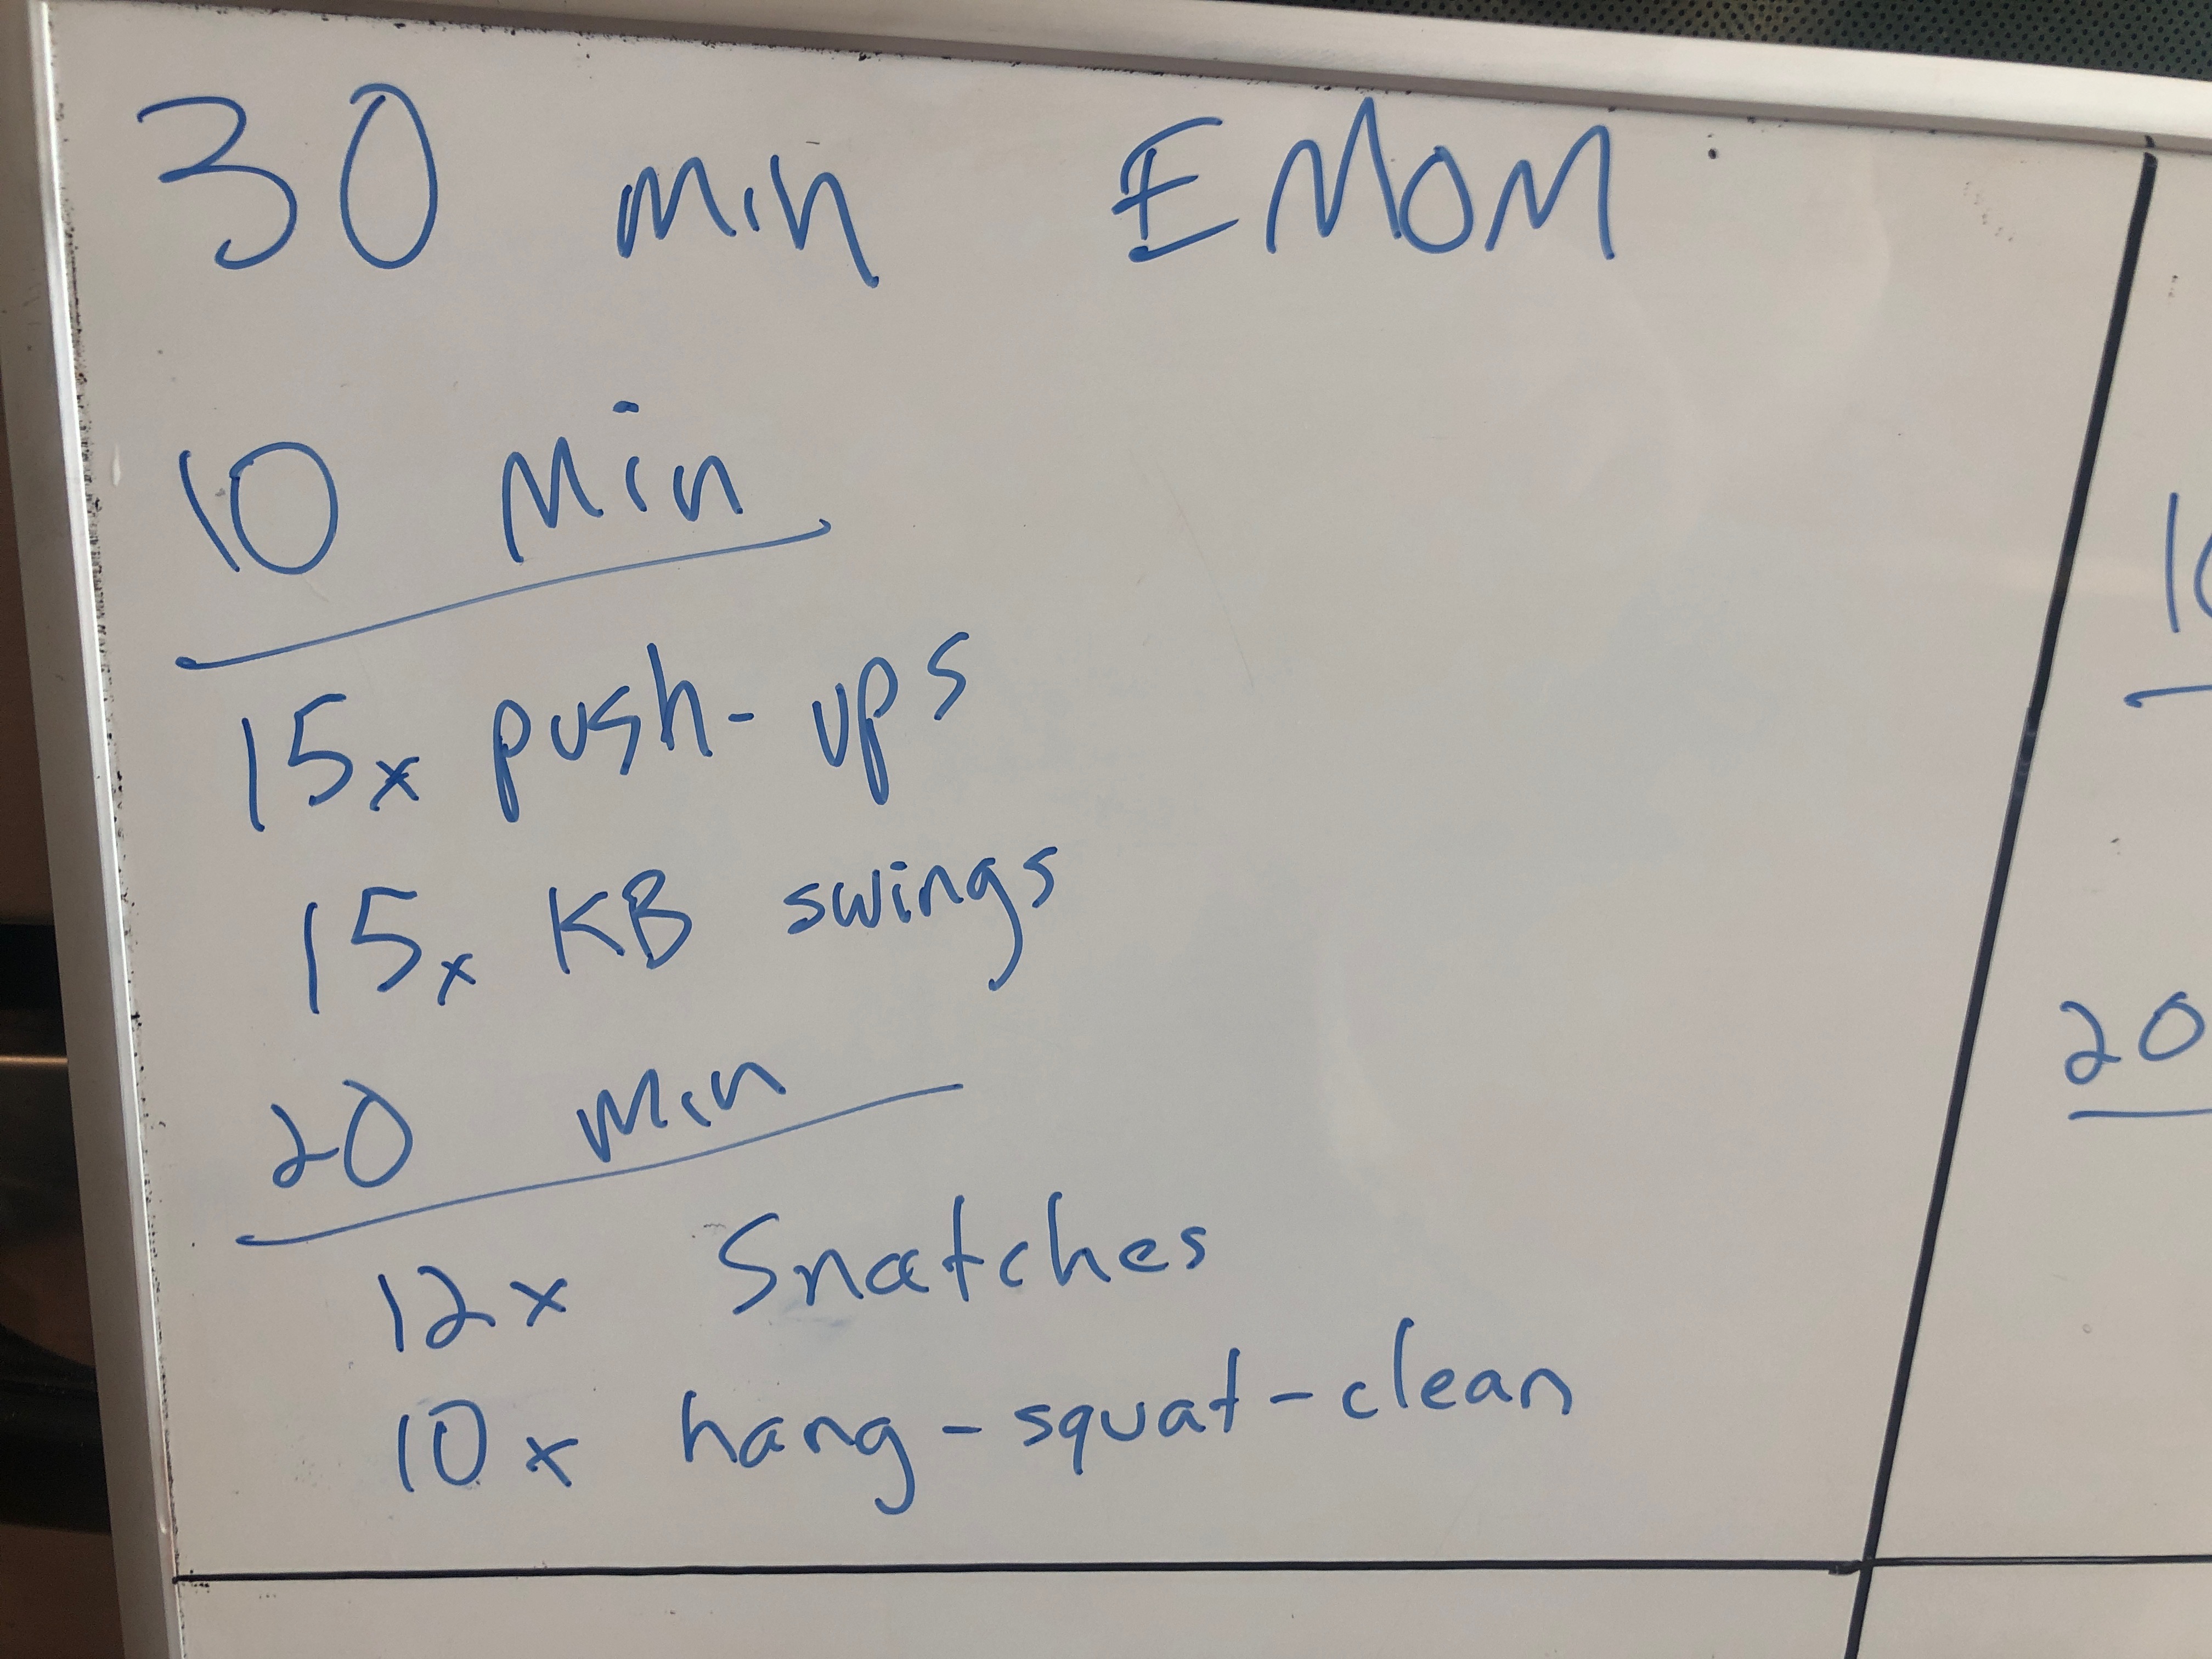 30 min EMOM
10 Min
15x push-ups
15x KB swings
20 Min
12x Snatches
10x hang-squat-clean
20